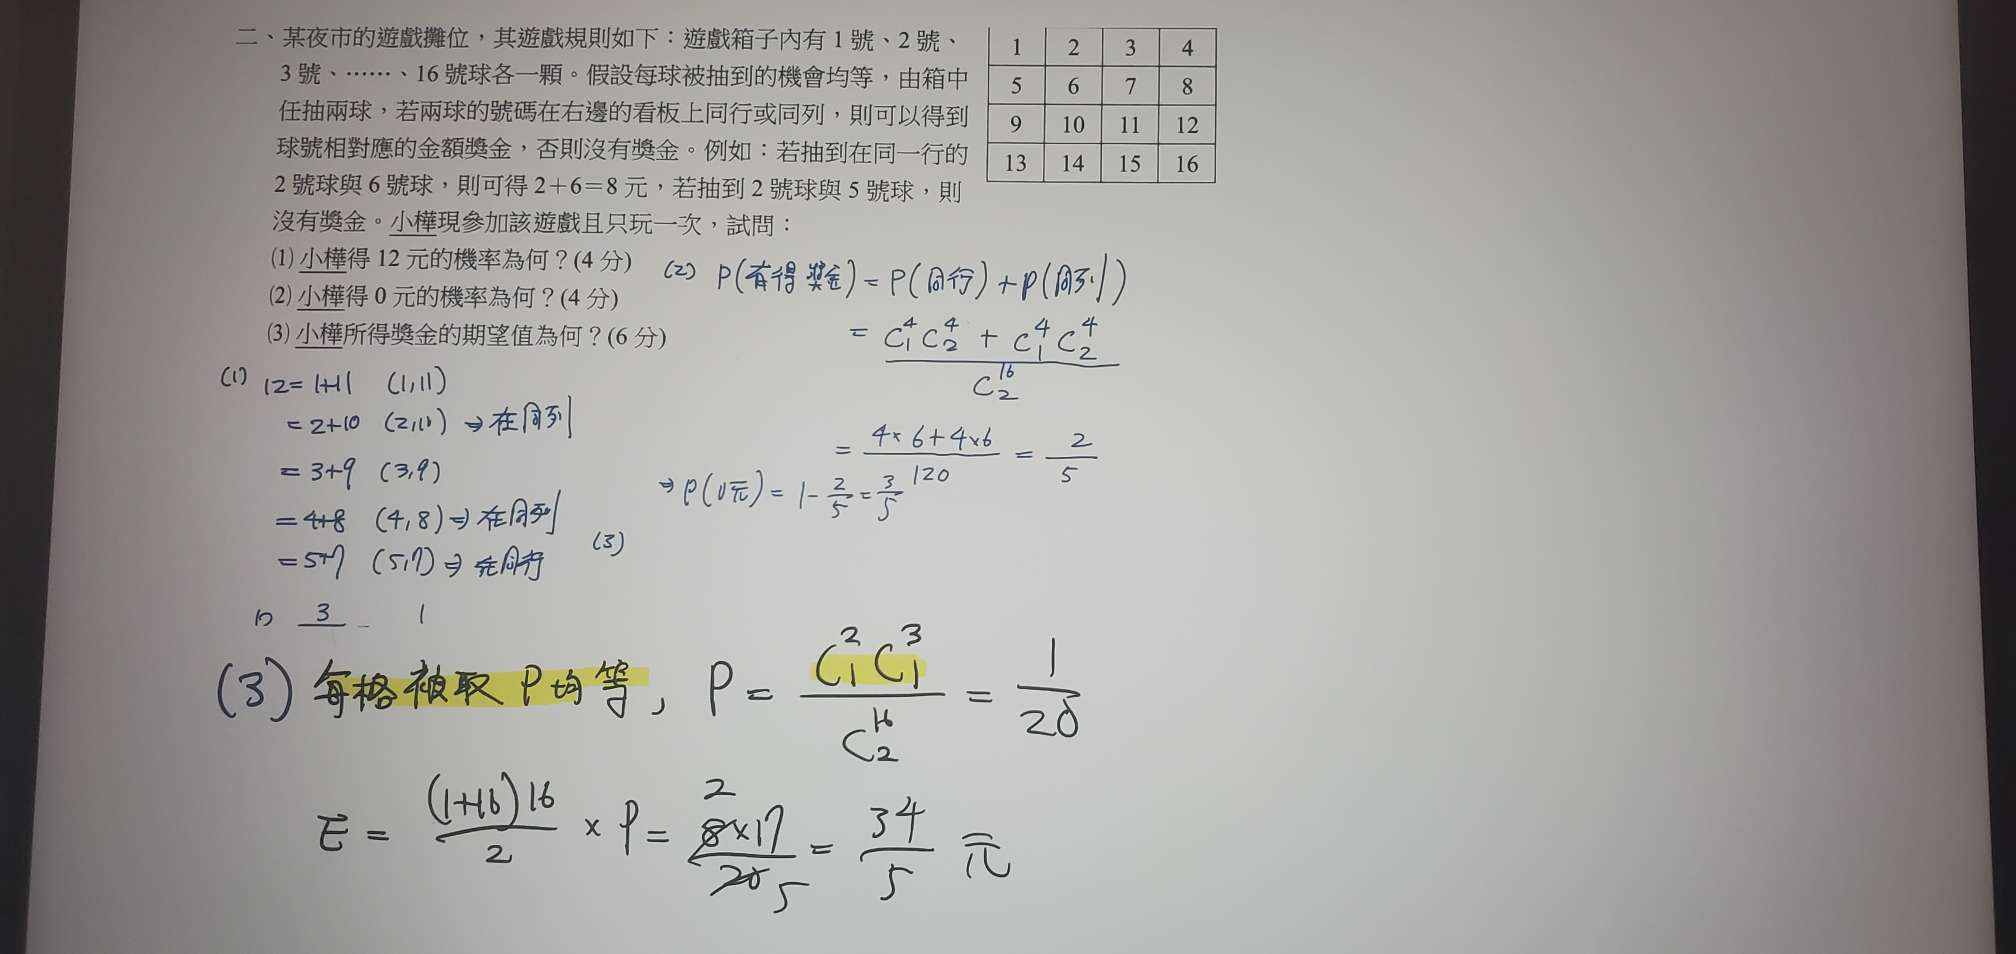 二、某夜市的遊戲攤位，其遊戲規則如下：遊戲箱子內有 1 號、2 號、
3 號、……、16 號球各一顆。假設每球被抽到的機會均等，由箱中
任抽兩球，若兩球的號碼在右邊的看板上同行或同列，則可以得到
球號相對應的金額獎金，否則沒有獎金。例如：若抽到在同一行的
2 號球與 6 號球，則可得 2＋6＝8 元，若抽到 2 號球與 5 號球，則
沒有獎金。小樺現參加該遊戲且只玩一次，試問：
(1) 小樺得 12 元的機率為何？(4 分)
(2) 小樺得 0 元的機率為何？(4 分)
(3) 小樺所得獎金的期望值為何？(6 分)
1 2 3 4
5 6 7 8
9 10 11 12
13 14 15 16
(1) 12=1+11 (1,11)
=2+10 (2,10) ⇒在同列
=3+9 (3,9)
=4+8 (4,8)⇒在同列
=5+7 (5,7)⇒在同行
3 1
(2) P(有得獎金)=P(同行)+P(同列)
= (C⁴₁C⁴₂ + C⁴₁C⁴₂) / C¹⁶₂
= (4×6+4×6) / 120 = 2/5
⇒P(0元)=1-2/5=3/5
(3)
(3) 每格被取P均等, P = C²₁C³₁ / C¹⁶₂ = 1/20
E = (1+16)16 / 2 × P = 8×17 / 20 = 34/5 元
2
5